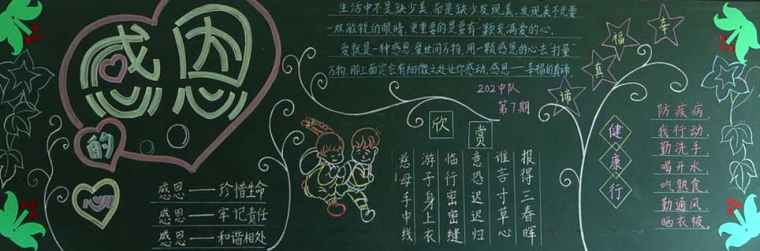 感恩
的
心
感恩——珍惜生命
感恩——牢记责任
感恩——和谐相处
生活中不是缺少真,而是缺少发现真,发现真不光要
一双敏锐的眼睛,更重要的是要有一颗充满爱的心。
爱就是一种感恩,爱世间万物,用一颗感恩的心去打量
万物,那上面定会有细微之处让你感动,感恩——幸福的真谛
202中队
第7期
欣赏
慈母手中线
游子身上衣
临行密密缝
意恐迟迟归
谁言寸草心
报得三春晖
幸福真谛
健康行
防疾病,
我行动,
勤洗手,
喝开水,
吃熟食,
勤通风,
晒衣被。